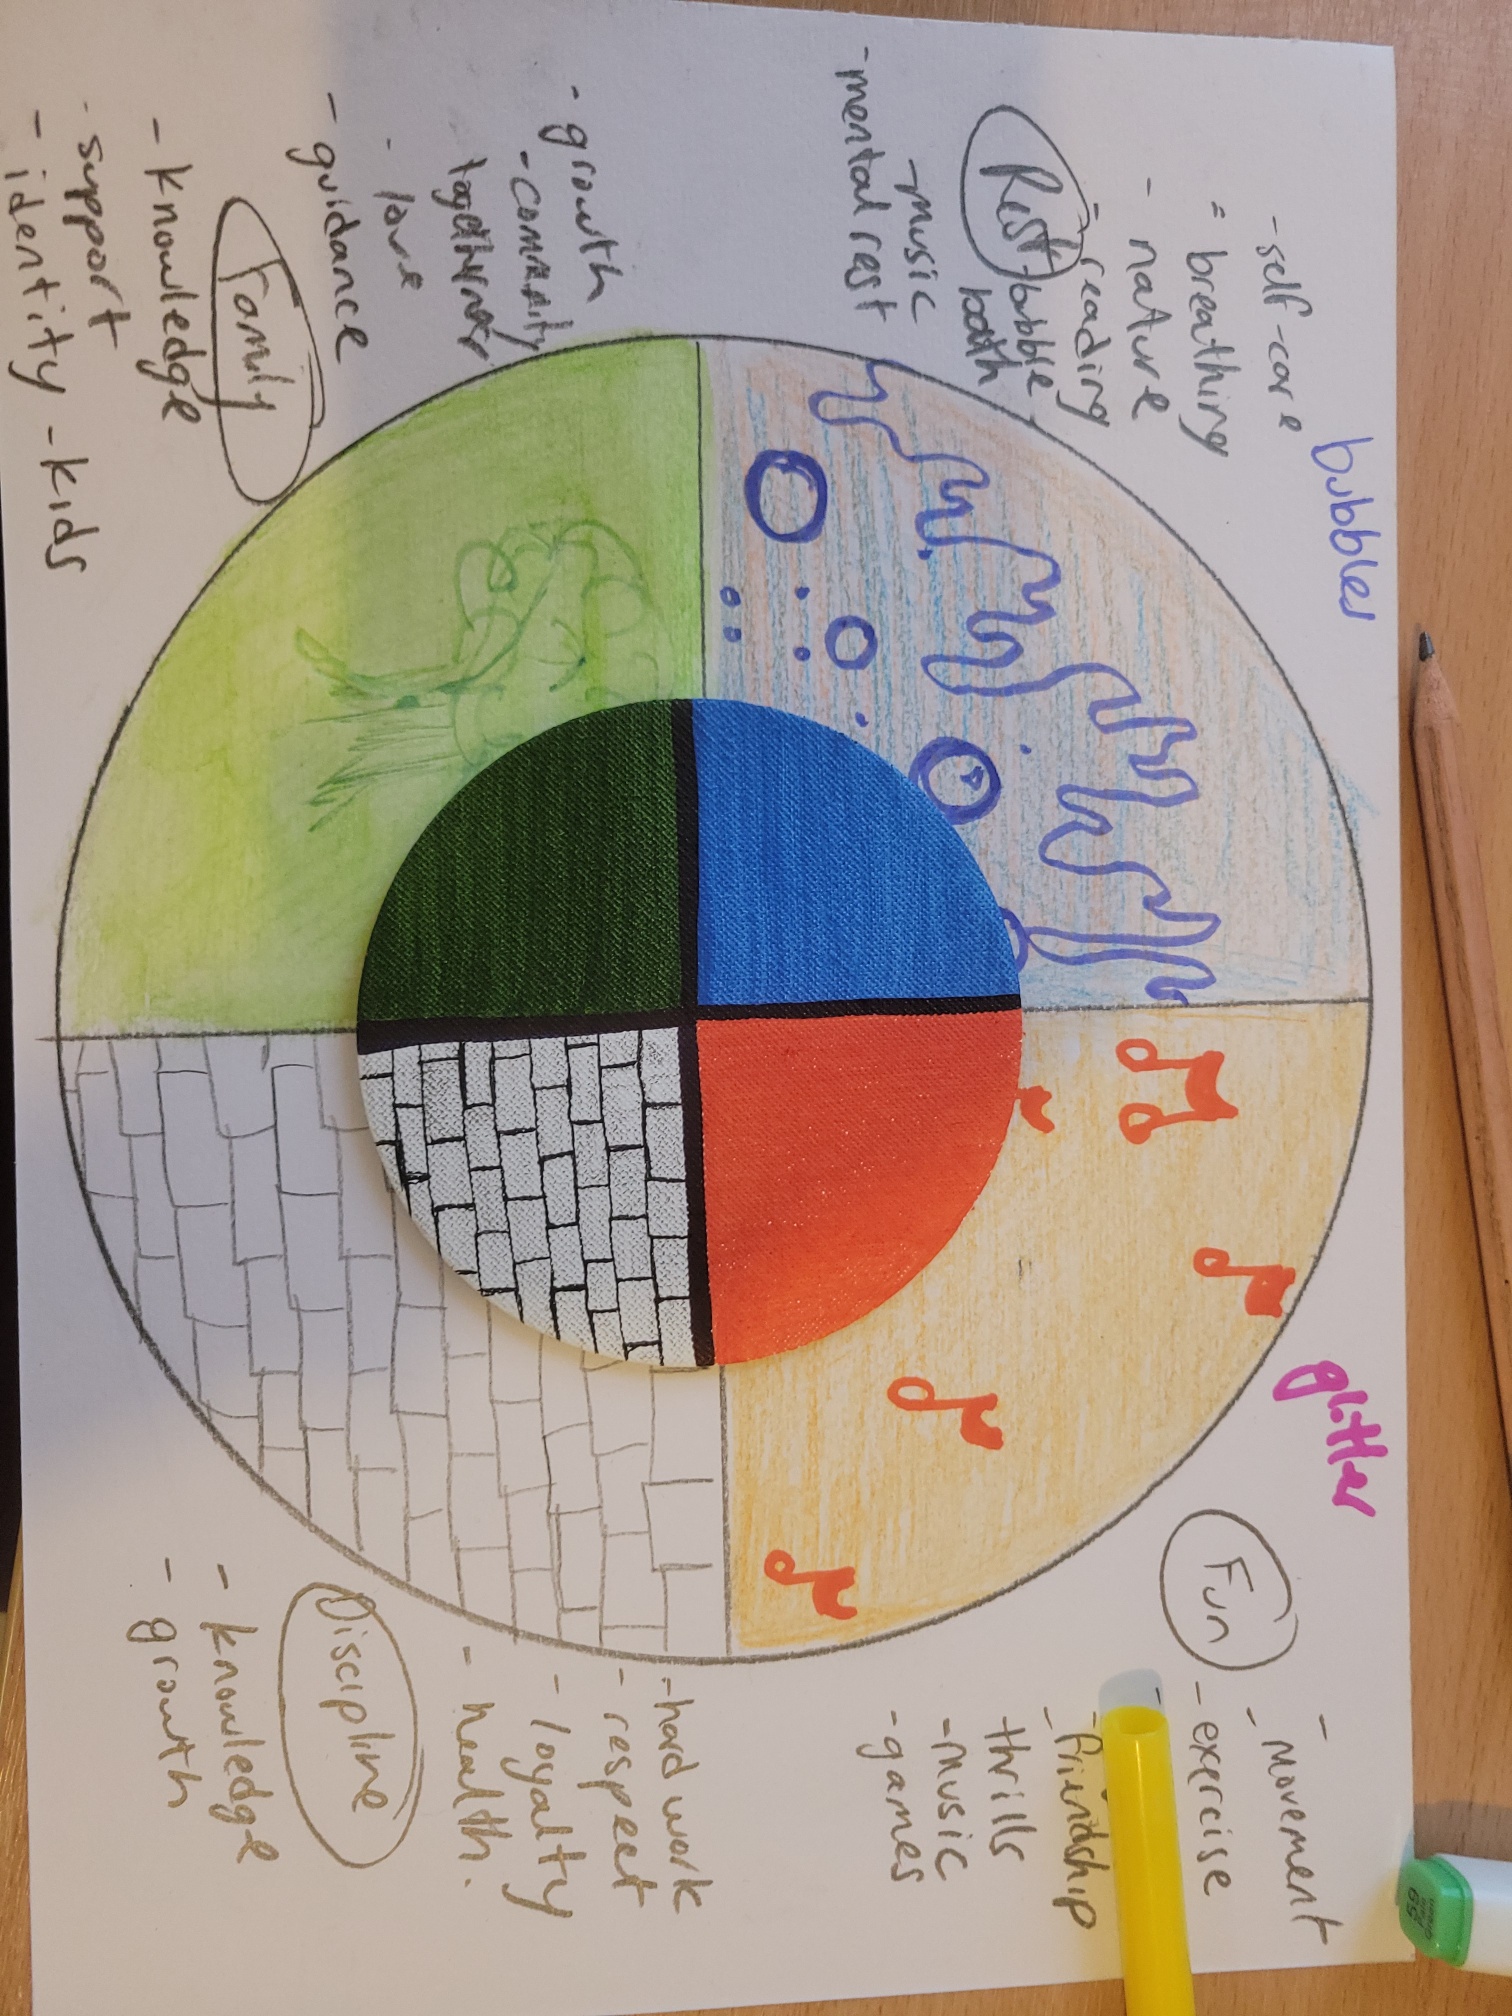 bubbles
- self-care
= breathing
- nature
- reading
Rest
- bubble
bath
- music
- mental rest
glitter
Fun
- movement
- exercise
- friendship
- thrills
- music
- games
- growth
- community
togetherness
- love
- guidance
Family
- knowledge
- support
- identity - kids
- hard work
- respect
- loyalty
- health.
Discipline
- knowledge
- growth
59